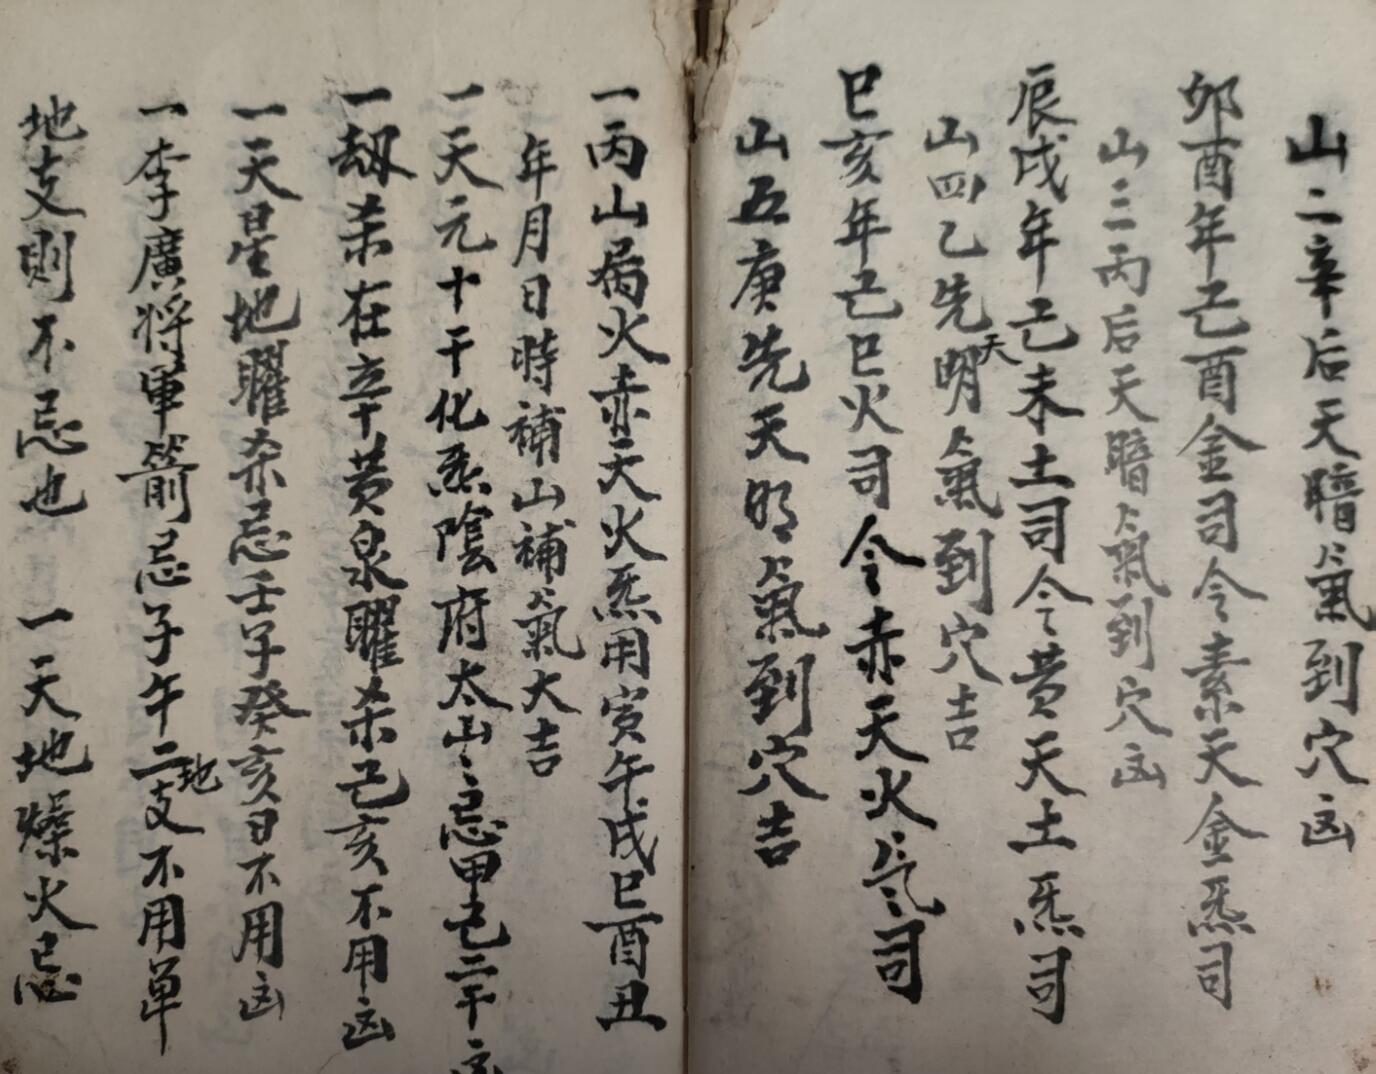 山二辛后天暗氣到穴凶
卯酉年乙酉金司令素天金炁司
山三丙后天暗氣到穴凶
辰戌年己未土司令黄天土炁司
山四乙先天明氣到穴吉
巳亥年己巳火司令赤天火氣司
山五庚先天明氣到穴吉
一丙山局火赤天火炁用寅午戌巳酉丑
年月日時補山補氣大吉
一天元十干化炁陰府太山忌甲己二干凶
一劫杀在辛黄泉曜杀己亥不用凶
一天星地曜杀忌壬子癸亥日不用凶
一李廣将軍箭忌子午二地支不用单
地支則不忌也 一天地燥火忌